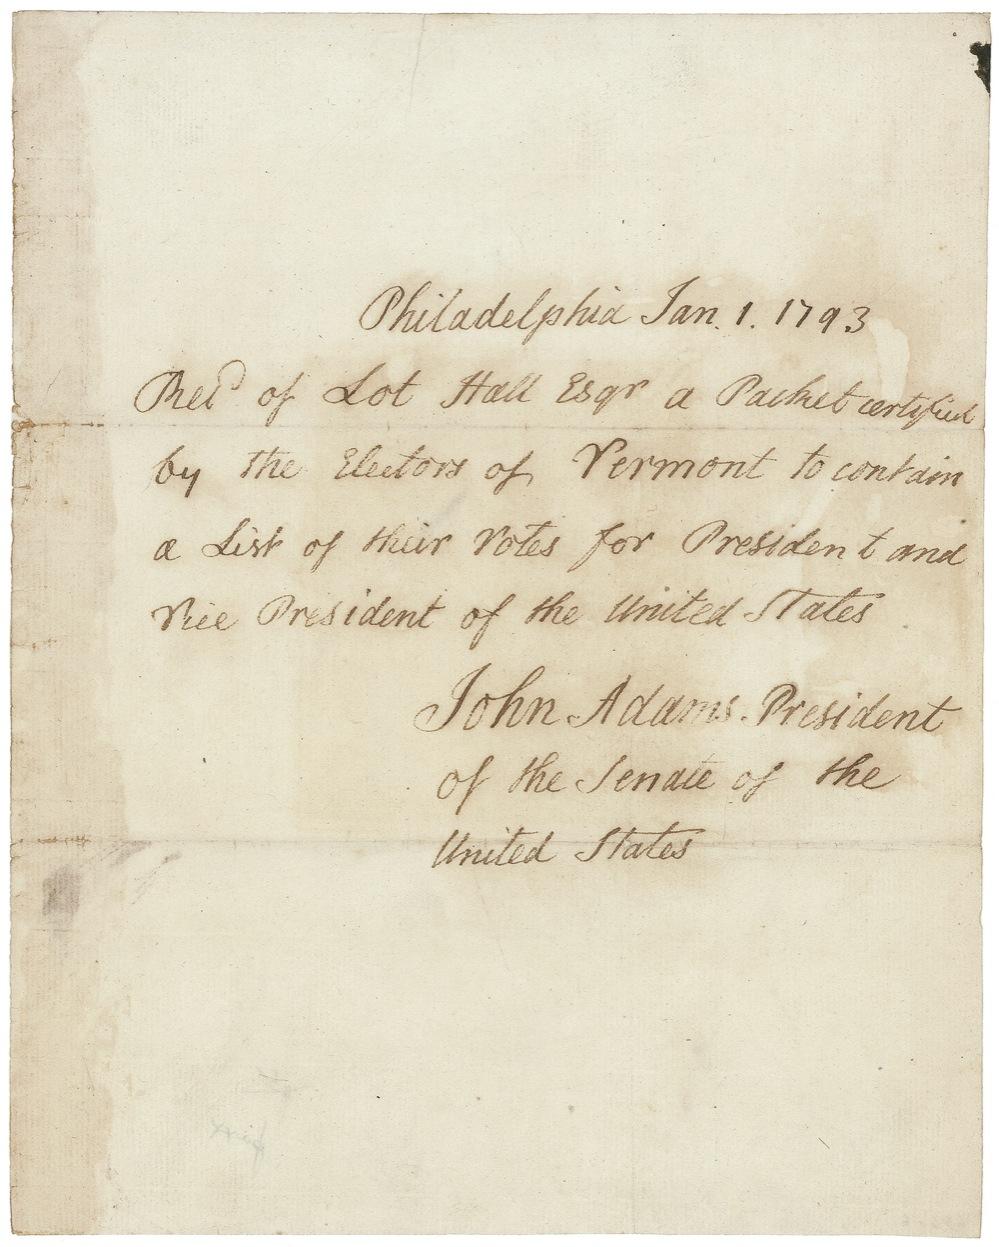 Philadelphia Jan. 1. 1793
Recd of Lot Hall Esqr a Packet certified
by the Electors of Vermont to contain
a List of their Votes for President and
Vice President of the United States
John Adams. President
of the Senate of the
United States